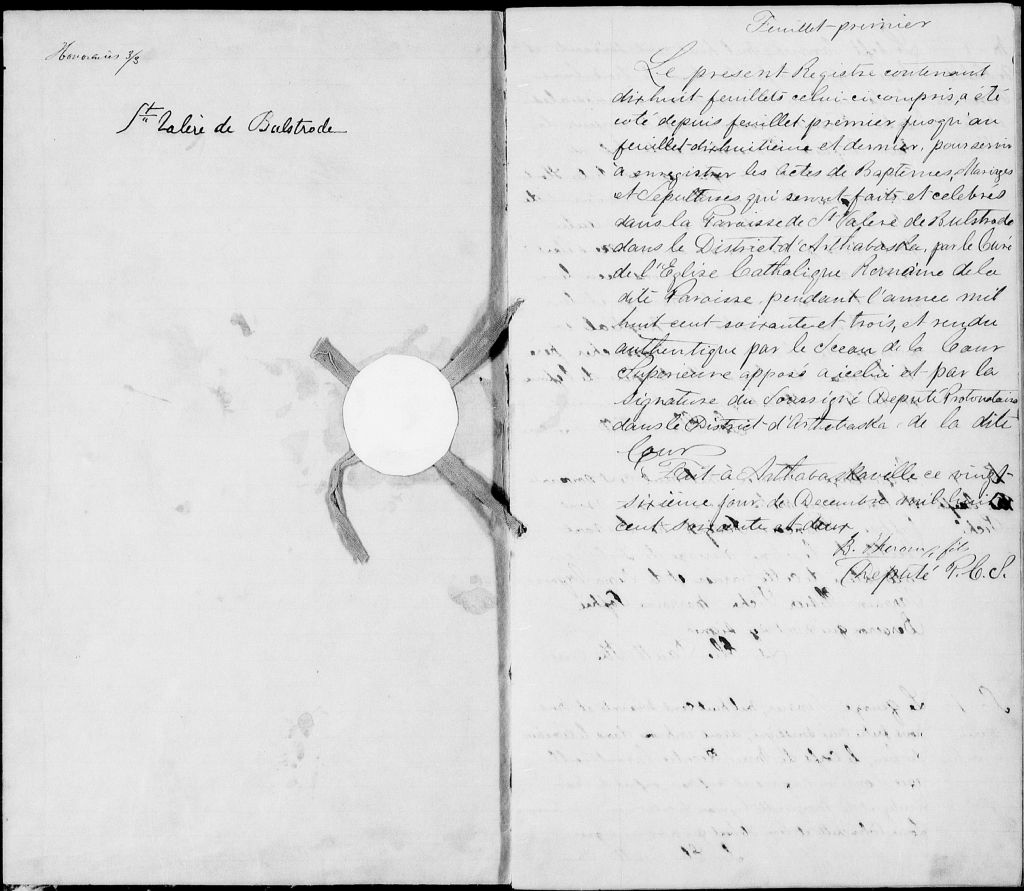 Honoraires 3/3
St Valère de Bulstrode
Feuillet premier
Le present Registre contenant
dixhuit feuillets celui-ci compris, a été
coté depuis feuillet premier jusqu'au
feuillet dixhuitième et dernier, pour servir
à enregistrer les actes de Baptemes, Mariages
et Sepultures qui seront faits et celebrés
dans la Paroisse de St Valère de Bulstrode
dans le District d'Arthabaska, par le Curé
de l'Eglise Catholique Romaine de la
dite Paroisse, pendant l'année mil
huit cent soixante et trois, et rendu
authentique par le Sceau de la Cour
Superieure apposé a icelui et par la
Signature du Soussigné Deputé Protonotaire
dans le District d'Arthabaska de la dite
Cour
Fait à Arthabaskaville ce vingt
sixième jour de Decembre mil huit
cent soixante et deux
B. Theroux, fils
Deputé P.C.S.